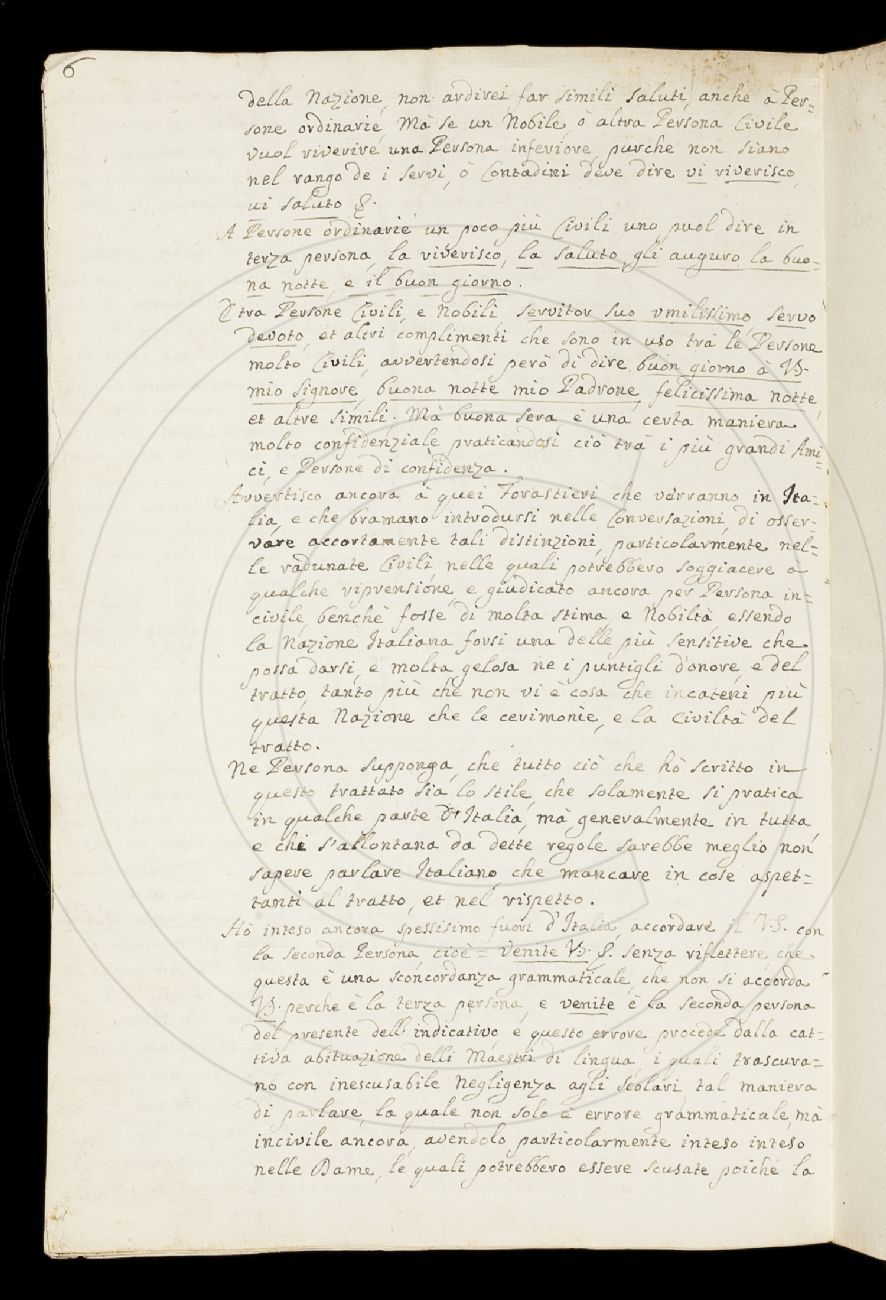 6
della Nazione, non ardirei far simili saluti, anche à Per=
sone ordinarie, Mà se un Nobile, ò altra Persona Civile
vuol riverire una Persona inferiore, purche non siano
nel rango de i servi, ò Contadini deve dire vi riverisco,
vi saluto &.
A Persone ordinarie un poco più Civili, uno puol dire in
terza persona, la riverisco, la saluto, gli auguro la buo=
na notte, e il buon giorno.
E tra Persone Civili, e Nobili servitor suo umilissimo, servo
devoto, et altri complimenti che sono in uso trà le Persone
molto Civili, avvertendosi però di dire buon giorno à V.S.
mio Signore, buona notte mio Padrone, felicissima notte,
et altre simili. Mà buona sera è una certa maniera
molto confidenziale praticandosi ciò trà i più grandi Ami=
ci, e Persone di confidenza.
Avvertisco ancora à quei Forastieri che verranno in Ita=
lia, e che bramano introdursi nelle Conversazioni, di osser=
vare accortamente tali distinzioni, particolarmente nel=
le radunate Civili nelle quali potrebbero soggiacere a
qualche riprensione e giudicato ancora per Persona in=
civile, benchè fosse di molta stima, e Nobiltà, essendo
la Nazione Italiana forsi una delle più sensitive che
possa darsi, e molta gelosa ne i puntigli d'onore, e del
tratto, tanto più che non vi è cosa che incateni più
questa Nazione che le cerimonie, e la Civiltà del
tratto.
Ne Persona supponga, che tutto ciò che hò scritto in
questo trattato sia lo stile che solamente si pratica
in qualche parte d'Italia, mà generalmente in tutta
e chi s'allontana da dette regole sarebbe meglio non
sapere parlare Italiano, che mancare in cose aspet=
tanti al tratto, et nel rispetto.
Hò inteso ancora spessisimo fuori d'Italia, accordare il V.S. con
la seconda Persona, cioè = Venite V.S. senza riflettere che
questa è una sconcordanza grammaticale, che non si accorda
V.S. perche è la terza persona, e venite è la seconda persona
del presente dell'indicativo e questo errore procede dalla cat=
tiva abituazione delli Maestri di lingua, i quali trascura=
no con inescusabile Negligenza agli Scolari tal maniera
di parlare, la quale non solo è errore grammaticale, mà
incivile ancora, avendolo particolarmente inteso inteso
nelle Dame, le quali potrebbero essere scusate poiche la